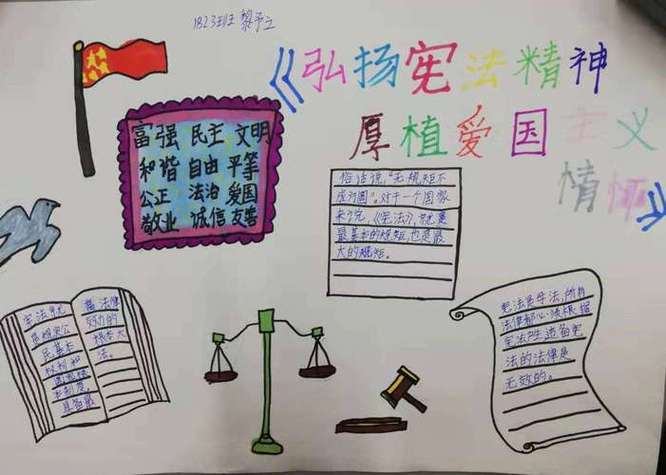 1823班
《弘扬宪法精神
厚植爱国主义
情怀》
富强 民主 文明
和谐 自由 平等
公正 法治 爱国
敬业 诚信 友善
俗话说,"无规矩不
成方圆"。对于一个国家
来说,《宪法》,就是
最基本的规矩,也是最
大的规矩。
宪法
是规定公
民基本
权利和
本制度,
具备最
高法律
效力的
根本大
法。
宪法是母法,所有
法律都必须根据
宪法产生,违备宪
法的法律是
无效的。